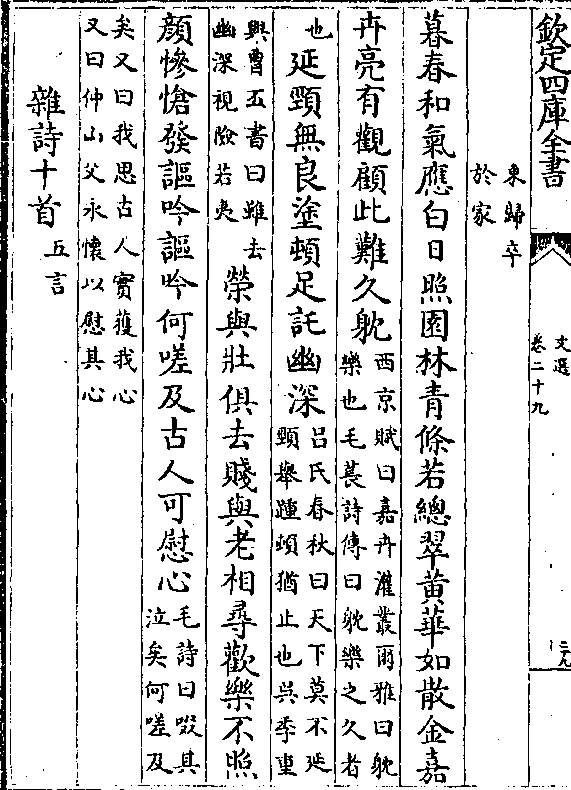 欽定四庫全書
文選
卷二十九
東歸卒
於家
暮春和氣應白日照園林青條若總翠黃華如散金嘉
卉亮有觀顧此難久躭
西京賦曰嘉卉灌叢爾雅曰躭
樂也毛萇詩傳曰躭樂之久者
也
延頸無良塗頓足託幽深
吕氏春秋曰天下莫不延
頸舉踵頓猶止也吳季重
與曹五書曰雖去
幽深視險若夷
榮與壯俱去賤與老相尋歡樂不照
顔慘愴發謳吟謳吟何嗟及古人可慰心
毛詩曰啜其
泣矣何嗟及
矣又曰我思古人實獲我心
又曰仲山父永懷以慰其心
雜詩十首
五言